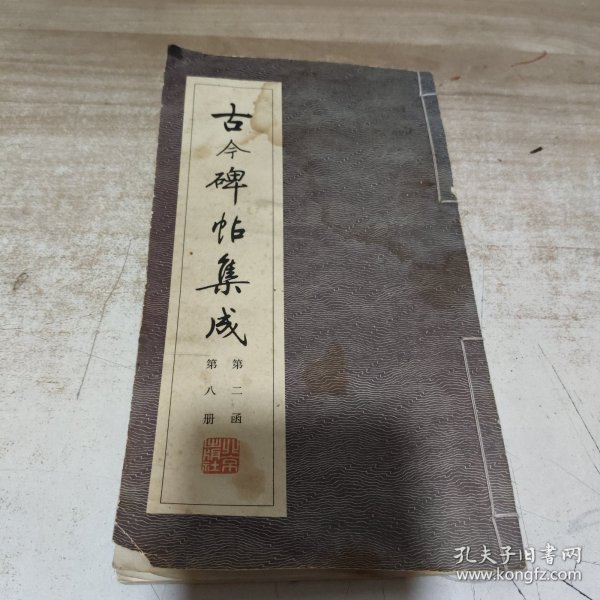 古今碑帖集成
第二函
第八册
北京
出版社
孔夫子旧书网
www.kongfz.com